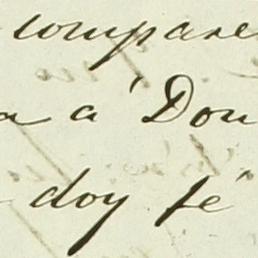 compare
a a Don
doy fé